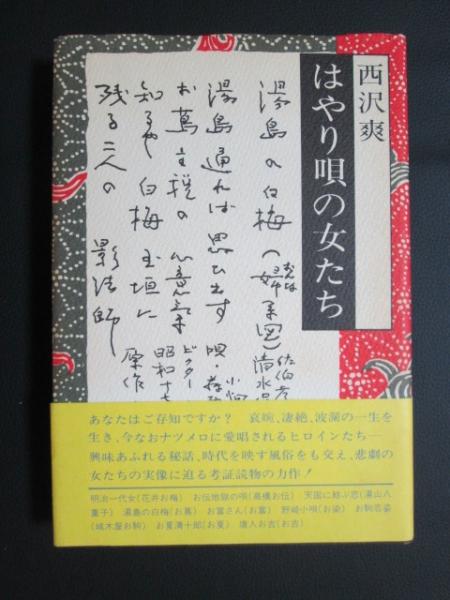 西沢爽
はやり唄の女たち
湯島の白梅(婦系図)
おんな
佐伯孝
清水
湯島通れば思ひ出す
唄・
小
お蔦主税の心意気
ビクター
昭和十七
知るや白梅玉垣に
原作
残る二人の影法師
あなたはご存知ですか? 哀婉、凄絶、波瀾の一生を
生き、今なおナツメロに愛唱されるヒロインたち―
興味あふれる秘話、時代を映す風俗をも交え、悲劇の
女たちの実像に迫る考証読物の力作!
明治一代女(花井お梅) お伝地獄の唄(高橋お伝) 天国に結ぶ恋(湯山八
重子) 湯島の白梅(お蔦) お富さん(お富) 野崎小唄(お染) お駒恋姿
(城木屋お駒) お夏清十郎(お夏) 唐人お吉(お吉)